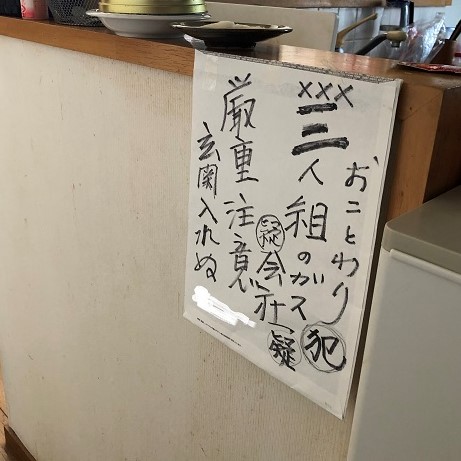 おことわり 犯
×××
三人組のガス
会社 疑
厳重注意
玄関入れぬ